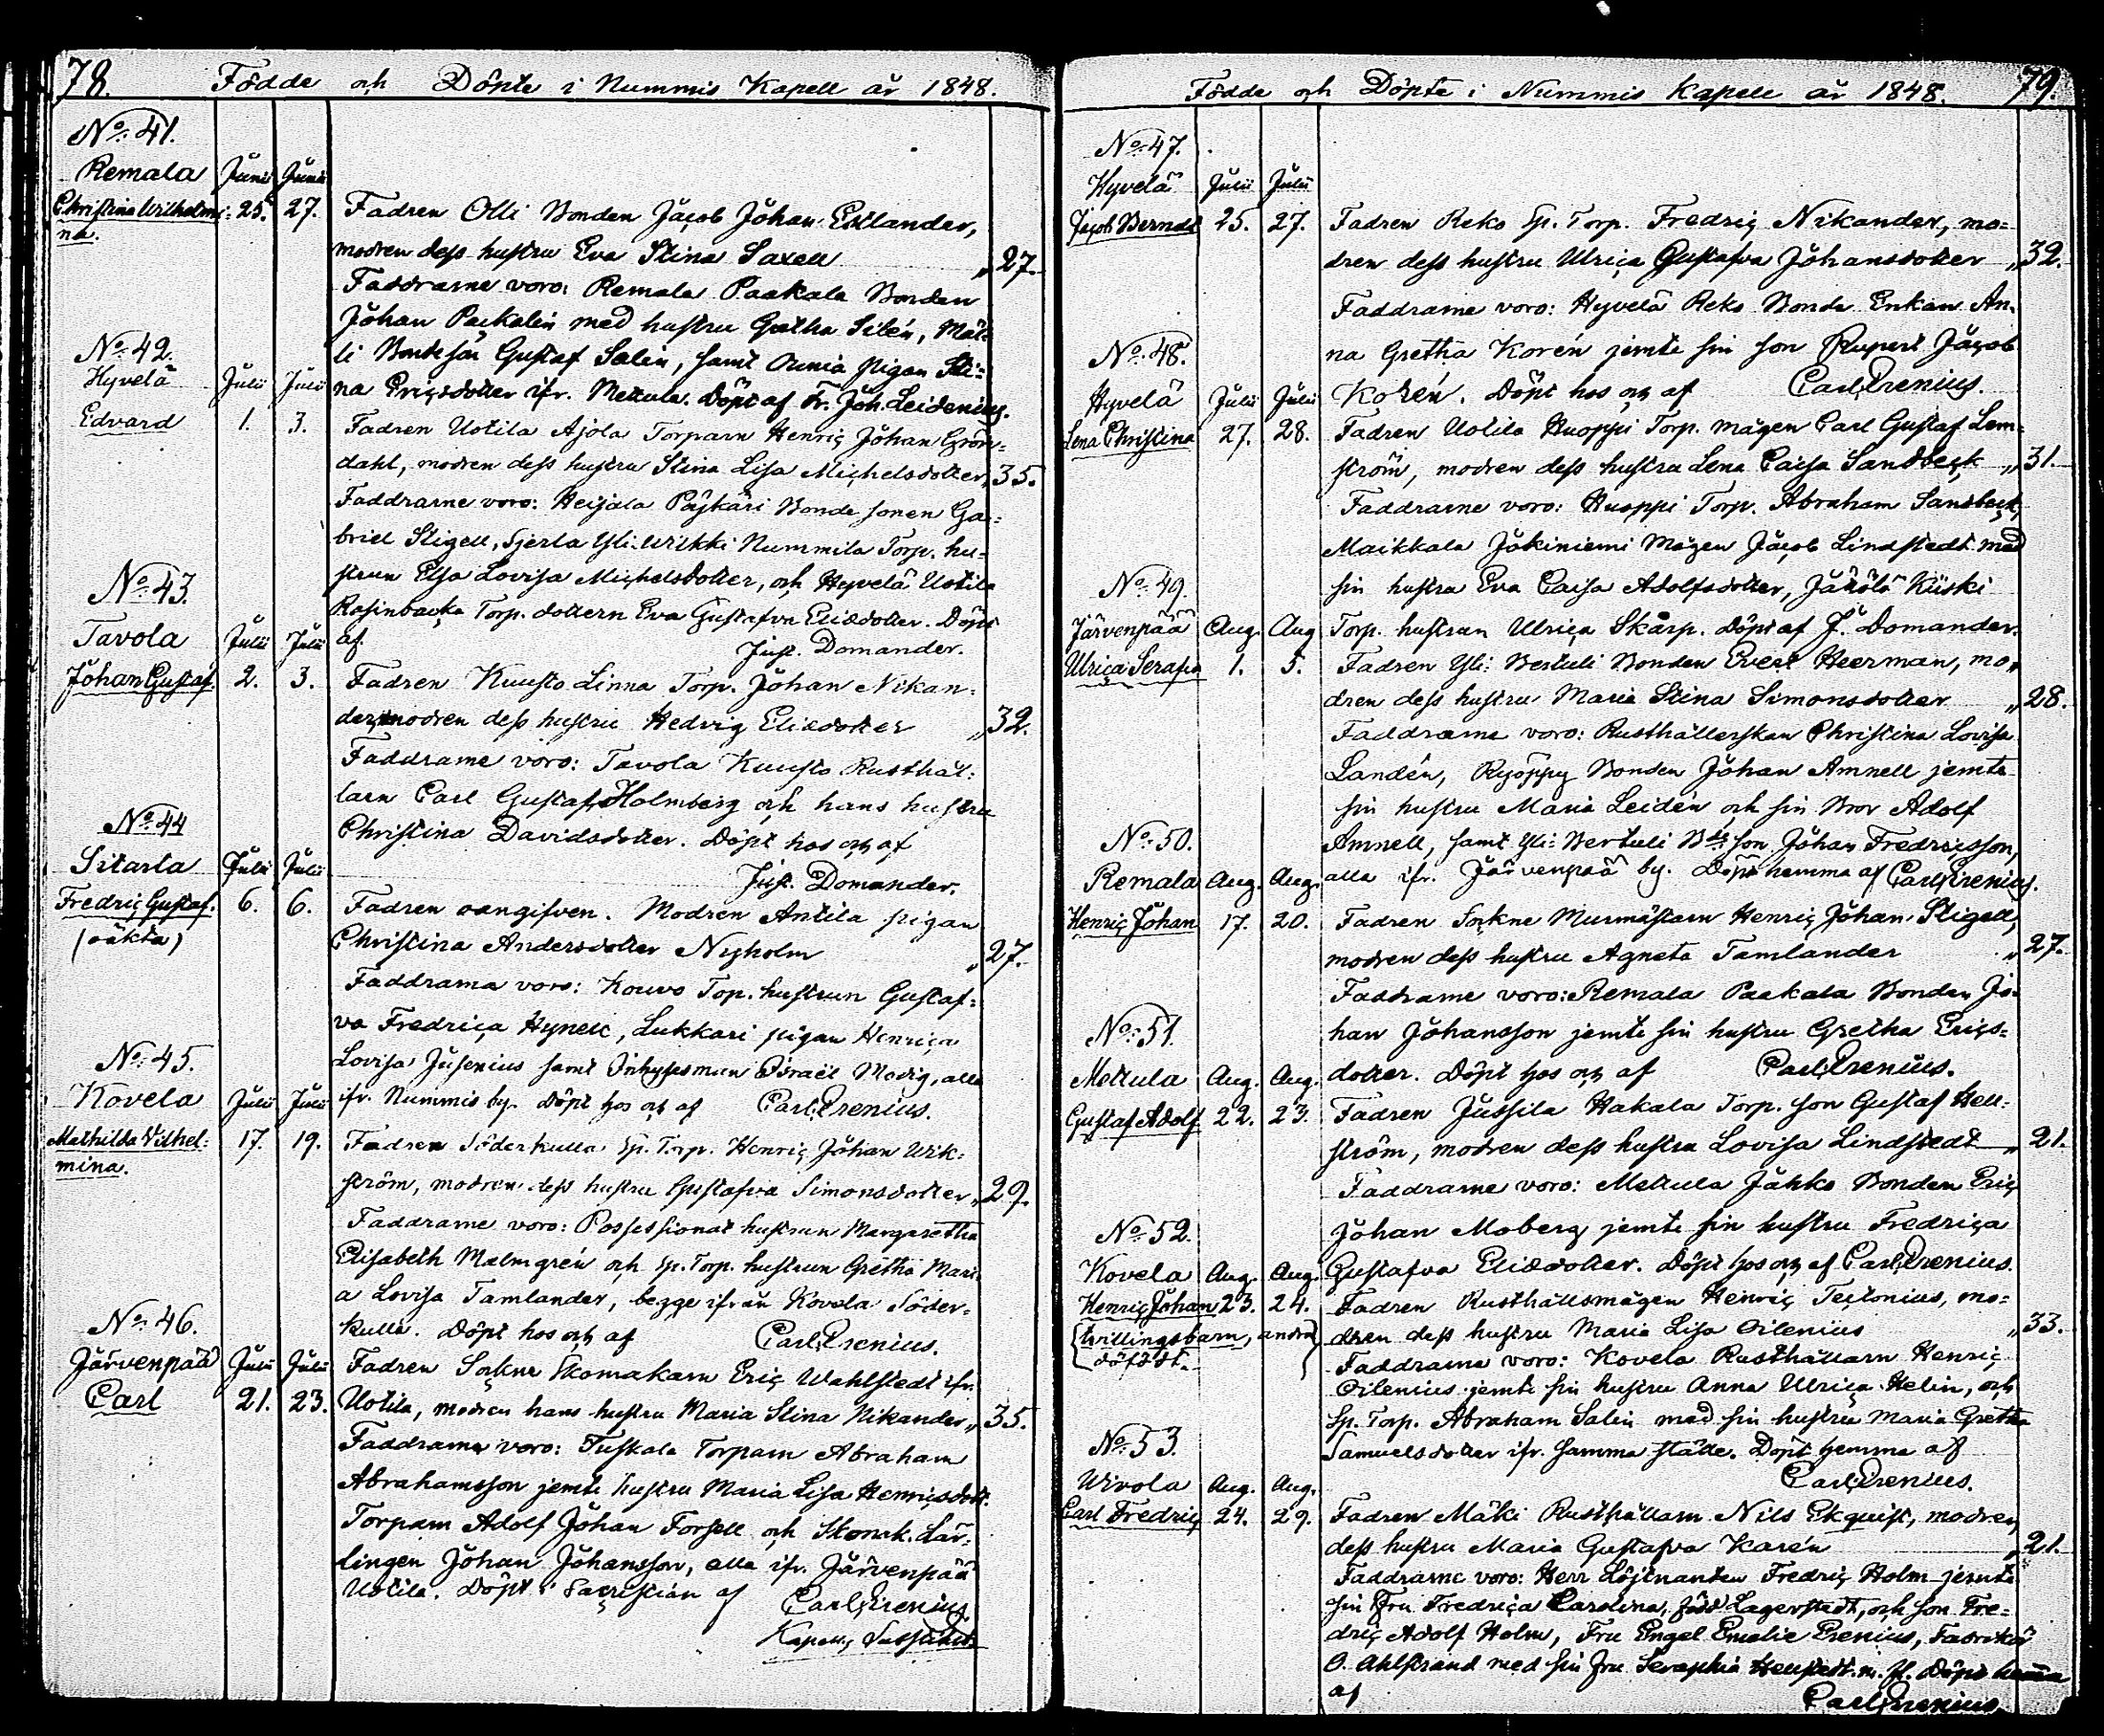 78. Födde och Döpte i Nummis Kapell år 1848.
No. 41.
Remala Junii Junii
Christina Wilhelmi- 25. 27. Fadren Olli Bonden Jacob Johan Estlander,
na.
modren dess hustru Eva Stina Saxell „27.
Faddrarne voro: Remala Paakala Bonden
Johan Pakalén med hustru Gretha Silén, Mät-
No. 42.
ti Bondeson Gustaf Salin, samt Ounia pigan Sti-
Hyvelä Julii Julii na Ericsdotter ifr. Mettula. Döpt af Fr. Joh. Leidenius.
Edvard 1. 3. Fadren Uotila Ajola Torparn Henric Johan Grön-
dahl, modren dess hustru Stina Lisa Michelsdotter „35.
Faddrarne voro: Heijala Päjkäri Bonde sonen Ga-
briel Stigell, Sjerla Yli-Wikki Nummila Torp. hu-
No. 43.
strun Elsa Lovisa Michelsdotter, och Hyvelä Uotila
Rosinbacka Torp. dottern Eva Gustafva Eliædotter. Döpt
Tavola Julii Julii af Just. Domander.
Johan Gustaf. 2. 3. Fadren Kuusto Linna Torp. Johan Nikan-
der, modren dess hustru Hedvig Eliædotter „32.
Faddrarne voro: Tavola Kuusto Rusthål-
larn Carl Gustaf Holmberg och hans hustru
No. 44
Christina Davidsdotter. Döpt hos och af
Sitarla Julii Julii Just. Domander.
Fredric Gustaf. 6. 6. Fadren oangifven. Modren Antila pigan
(oäkta)
Christina Andersdotter Nyholm „27.
Faddrarna voro: Kouvo Top. hustrun Gustaf-
va Fredrica Hynell, Lukkari pigan Henrica
No. 45.
Lovisa Jusenius samt Inhysesman Israel Modig, alla
Kovela Julii Julii ifr. Nummis by. Döpt hos och af Carl Irenius.
Mathilda Vilhel- 17. 19. Fadren Söderkulla Sp. Torp. Henric Johan Wik-
mina.
ström, modren dess hustru Gustafva Simonsdotter „29.
Faddrarne voro: Possessionat hustrun Margaretha
Elisabeth Malmgrén och Sp. Torp. hustrun Gretha Mari-
a Lovisa Tamlander, begge ifrån Kovela Söder-
No. 46.
kulla. Döpt hos och af Carl Irenius.
Järvenpää Julii Julii Fadren Sockne Skomakarn Eric Wahlstedt ifr.
Carl 21. 23. Uotila, modren hans hustru Maria Stina Nikander „35.
Faddrarne voro: Tuskala Torparn Abraham
Abrahamsson jemte hustru Maria Lisa Henricsdott.
Torparn Adolf Johan Forsell och Skomak. Lär-
lingen Johan Johansson, alla ifr. Järvenpää
Uotila. Döpt i Sacristian af Carl Irenius.
Kapells
Födde och Döpte i Nummis Kapell år 1848. 79.
No. 47.
Hyvelä Julii Julii
Jacob Berndt 25. 27. Fadren Reko Sp. Torp. Fredric Nikander, mo-
dren dess hustru Ulrica Gustafva Johansdotter „32.
Faddrarne voro: Hyvelä Reko Bonde Enkan An-
No. 48.
na Gretha Korén jemte sin son Rupert Jacob
Hyvelä Julii Julii Korén. Döpt hos och af Carl Irenius.
Lena Christina 27. 28. Fadren Uotila Huoppi Torp. mågen Carl Gustaf Lem-
ström, modren dess hustru Lena Caisa Sandbeck „31.
Faddrarne voro: Huoppi Torp. Abraham Sandbeck,
Maikkala Jokiniemi Mågen Jacob Lindstedt med
No. 49.
sin hustru Eva Caisa Adolfsdotter, Jättölä Kiiski
Järvenpää Aug. Aug Torp. hustrun Ulrica Skarp. Döpt af J. Domander.
Ulrica Serafia 1. 5. Fadren Yli-Bertuli Bonden Evert Heerman, mo-
dren dess hustru Maria Stina Simonsdotter „28.
Faddrarne voro: Rusthållerskan Christina Lovisa
Landén, Ryöppy Bonden Johan Amnell jemte
sin hustru Maria Leidén och sin Bror Adolf
No. 50.
Amnell, samt Yli-Bertuli Bde son Johan Fredricsson,
Remala Aug. Aug. alla ifr. Järvenpää by. Döpt hemma af Carl Irenius.
Henric Johan 17. 20. Fadren Sockne Murmästarn Henric Johan Stigell,
modren dess hustru Agneta Tamlander „27.
Faddrarne voro: Remala Paakala Bonden Jo-
No. 51.
han Johansson jemte sin hustru Gretha Erics-
Mettula Aug. Aug. dotter. Döpt hos och af Carl Irenius.
Gustaf Adolf. 22. 23. Fadren Jussila Hakala Torp. son Gustaf Hell-
ström, modren dess hustru Lovisa Lindstedt „21.
Faddrarne voro: Mettula Jahko Bonden Eric
No. 52.
Johan Moberg jemte sin hustru Fredrica
Kovela Aug. Aug. Gustafva Eliædotter. Döpt hos och af Carl Irenius.
Henric Johan 23. 24. Fadren Rusthållsmågen Henric Tectonius, mo-
(tvillingsbarn, andra dödfödt.)
dren dess hustru Maria Lisa Oilenius „33.
Faddrarne voro: Kovela Rusthållarn Henric
Oilenius jemte sin hustru Anna Ulrica Helin, och
Sp. Torp. Abraham Salin med sin hustru Maria Gretha
No. 53.
Samuelsdotter ifr. samma ställe. Döpt hemma af
Carl Irenius.
Wivola Aug. Aug.
Carl Fredric 24. 29. Fadren Mäki Rusthållarn Nils Ekquist, modren
dess hustru Maria Gustafva Karén „21.
Faddrarne voro: Herr Löjtnanten Fredric Holm jemte
sin Fru Fredrica Carolina, född Lagerstedt, och son Fre-
dric Adolf Holm, Fru Engel Emelie Irenius, Fabrikör
O. Ahlstrand med sin Fru Seraphia Hellstedt m. fl. Döpt hemma
af Carl Irenius.